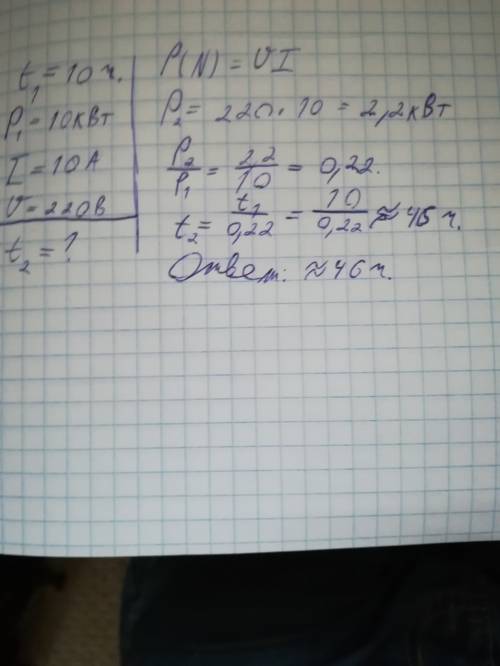 t₁ = 10 ч.
P₁ = 10кВт
I = 10 А
U = 220В
t₂ = ?
P(N) = UI
P₂ = 220 · 10 = 2,2кВт
P₂/P₁ = 2,2/10 = 0,22.
t₂ = t₁/0,22 = 10/0,22 ≈ 46 ч.
Ответ: ≈ 46 ч.